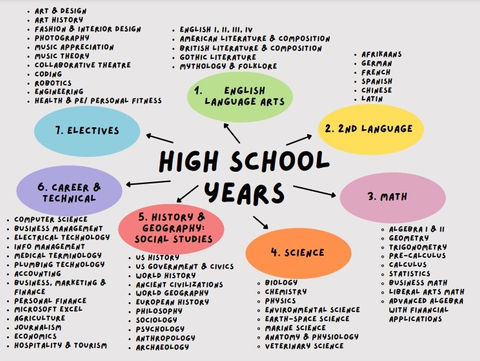 ART & DESIGN
ART HISTORY
FASHION & INTERIOR DESIGN
PHOTOGRAPHY
MUSIC APPRECIATION
MUSIC THEORY
COLLABORATIVE THEATRE
CODING
ROBOTICS
ENGINEERING
HEALTH & PE/ PERSONAL FITNESS
ENGLISH I, II, III, IV
AMERICAN LITERATURE & COMPOSITION
BRITISH LITERATURE & COMPOSITION
GOTHIC LITERATURE
MYTHOLOGY & FOLKLORE
AFRIKAANS
GERMAN
FRENCH
SPANISH
CHINESE
LATIN
1. ENGLISH
LANGUAGE ARTS
7. ELECTIVES
2. 2ND LANGUAGE
HIGH SCHOOL
YEARS
6. CAREER &
TECHNICAL
3. MATH
5. HISTORY &
GEOGRAPHY:
SOCIAL STUDIES
4. SCIENCE
COMPUTER SCIENCE
BUSINESS MANAGEMENT
ELECTRICAL TECHNOLOGY
INFO MANAGEMENT
MEDICAL TERMINOLOGY
PLUMBING TECHNOLOGY
ACCOUNTING
BUSINESS, MARKETING &
FINANCE
PERSONAL FINANCE
MICROSOFT EXCEL
AGRICULTURE
JOURNALISM
ECONOMICS
HOSPITALITY & TOURISM
US HISTORY
US GOVERNMENT & CIVICS
WORLD HISTORY
ANCIENT CIVILIZATIONS
WORLD GEOGRAPHY
EUROPEAN HISTORY
PHILOSOPHY
SOCIOLOGY
PSYCHOLOGY
ANTHROPOLOGY
ARCHAEOLOGY
BIOLOGY
CHEMISTRY
PHYSICS
ENVIRONMENTAL SCIENCE
EARTH-SPACE SCIENCE
MARINE SCIENCE
ANATOMY & PHYSIOLOGY
VETERINARY SCIENCE
ALGEBRA I & II
GEOMETRY
TRIGONOMETRY
PRE-CALCULUS
CALCULUS
STATISTICS
BUSINESS MATH
LIBERAL ARTS MATH
ADVANCED ALGEBRA
WITH FINANCIAL
APPLICATIONS